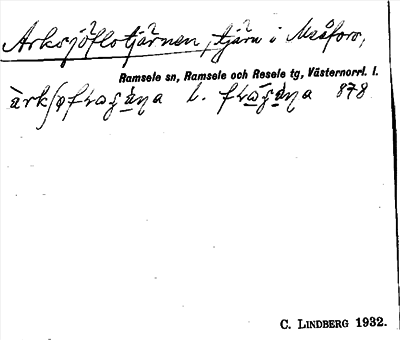 Arksjöflotjärnen, tjärn i Msåfors,
Ramsele sn, Ramsele och Resele tg, Västernorrl. l.
l. 878
C. LINDBERG 1932.